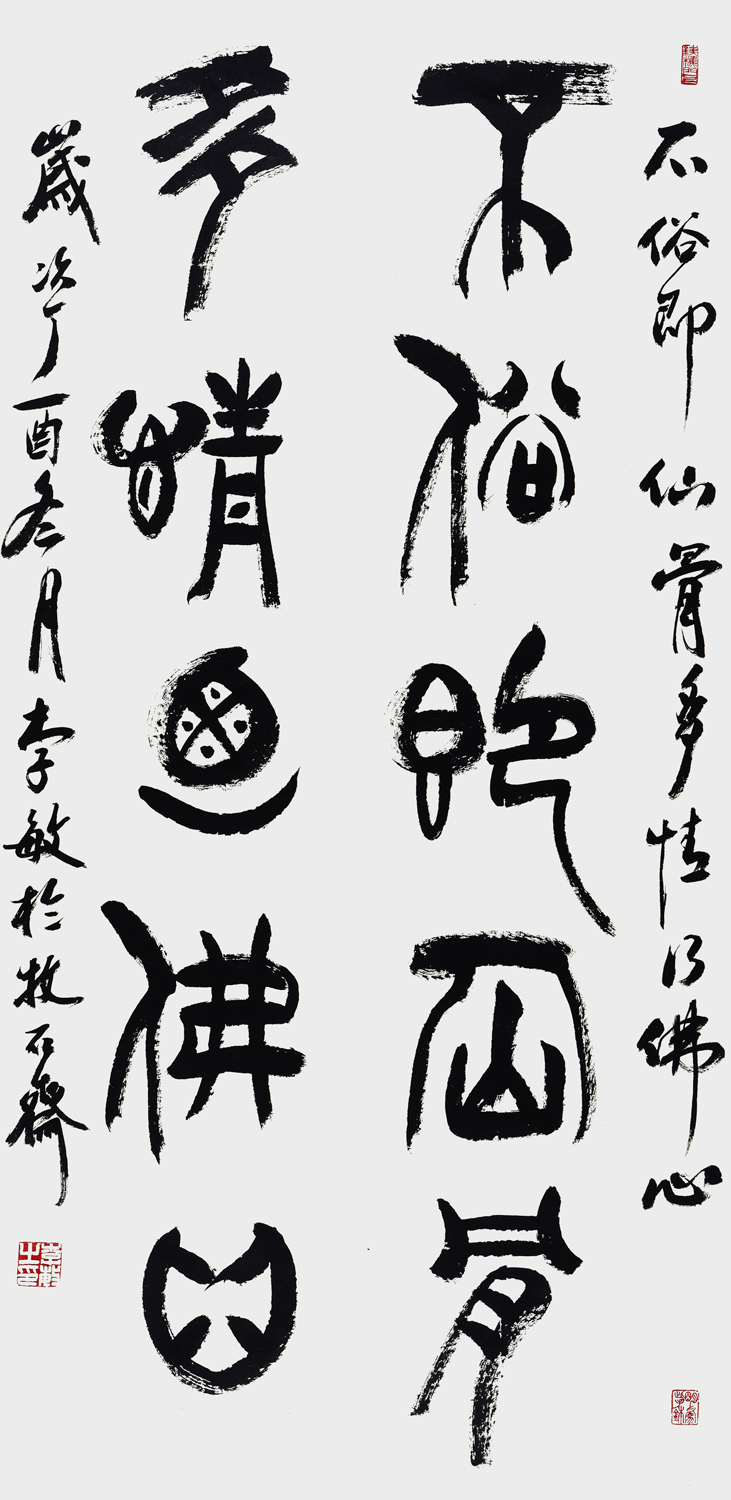 不俗即仙骨多情乃佛心
不俗即仙骨
多情迺佛心
歲次丁酉冬月李敏於牧石齋
李敏之印